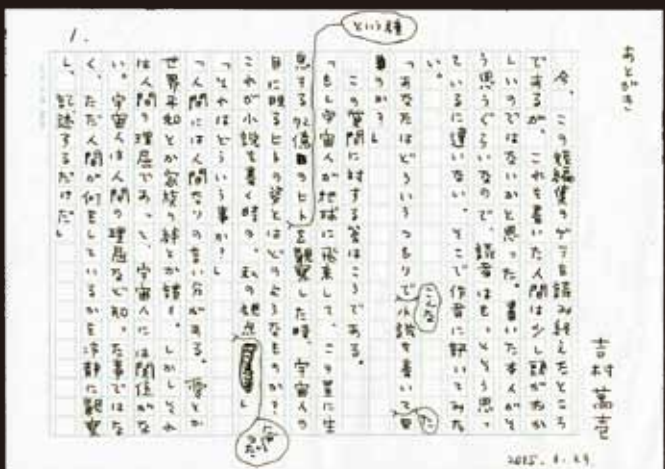 あとがき
吉村萬壱
今、この短編集のゲラを読み終えたところ
であるが、これを書いた人間は少し頭がおか
しいのではないかと思った。書いた本人がそ
う思うぐらいなので、読者はもっとそう思っ
ているに違いない。そこで作者に訊いてみた
い。
「あなたはどういうつもりでこんな小説を書いた
のか?」
この質問に対する答はこうである。
「もし宇宙人が地球に飛来して、この星に生
息する72億のヒトという種を観察した時、宇宙人の
目に映るヒトの姿とはどのようなものか?
これが小説を書く時の、私の視点だ」
「それはどういう事か?」
「人間には人間なりの言い分がある。愛とか
世界平和とか家族の絆とか諸々。しかしそれ
は人間の理屈であって、宇宙人には関係がな
い。宇宙人は人間の理屈など知った事ではな
く、ただ人間が何をしているかを冷静に観察
し、記述するだけだ」
1.
2015.1.29